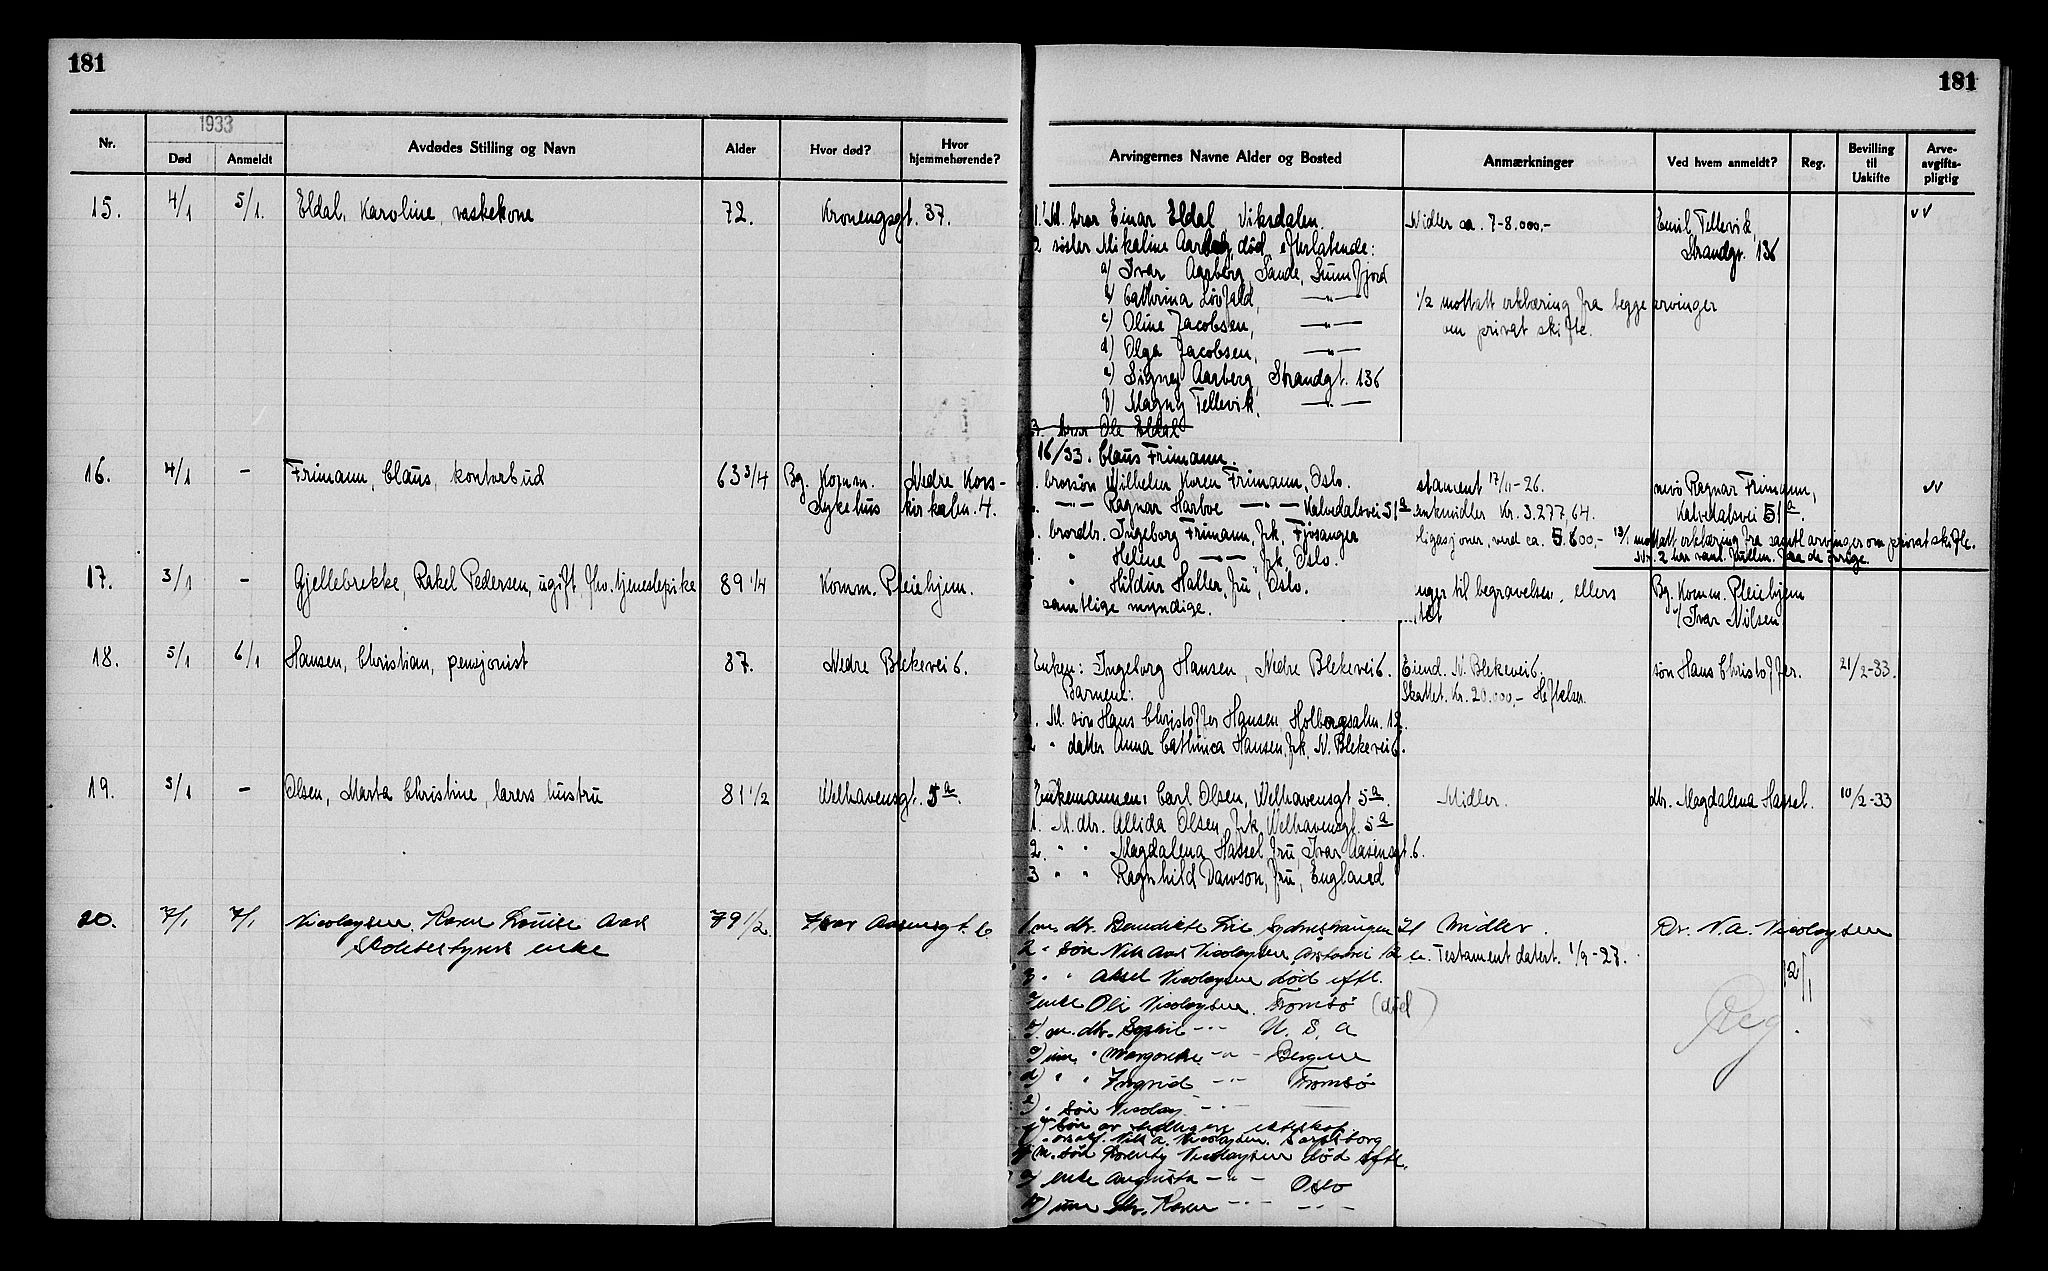 181
181
1933
Nr.
Død
Anmeldt
Avdødes Stilling og Navn
Alder
Hvor død?
Hvor hjemmehørende?
Arvingernes Navne Alder og Bosted
Anmærkninger
Ved hvem anmeldt?
Reg.
Bevilling til Uskifte
Arve-avgifts-pligtig
15. 4/1 5/1. Eldal, Karoline, vaskekone 72. Kronengsgt. 37.
1. M. bror Einar Eldal Viksdalen.
2. søster Mikaline Aarberg, død, efterlatende:
a) Ivar Aarberg, Sande, Sunnfjord
b) Cathrina Løvfald, —"—
c) Oline Jacobsen, —"—
d) Olga Jacobsen, —"—
e) Signey Aarberg, Strandgt. 136
f) Magny Tellevik, —"—
3. bror Ole Eldal
Midler ca. 7-8.000,-
1/2 mottatt erklæring fra begge arvinger
om privat skifte.
Emil Tellevik,
Strandgt. 136
vv
16. 4/1 - Frimann, Claus, kontorbud 63 3/4 Bg. Komm. Sykehus Nedre Kors-kirkealm. 4.
16/33. Claus Frimann.
brorsøn Wilhelm Koren Frimann, Oslo.
—"— Ragnar Harboe —"— Kalvedalsvei 51a
brordtr. Ingeborg Frimann, frk, Fjøsanger
" Helene —"— frk, Oslo.
" Hildur Haller, fru, Oslo.
samtlige myndige.
stament 17/11-26.
ankmidler Kr. 3.277,64.
ligasjoner, verd ca. 5.800,-
nevø Ragnar Frimann,
Kalvedalsvei 51a.
13/1 mottatt erklæring fra samtl arvinger om privat skifte.
Nr. 2 har vand. fullm. fra de øvrige.
vv
17. 3/1 - Gjellebrekke, Rakel Pedersen, ugift fhv. tjenestepike 89 1/4 Komm. Pleiehjem.
nger til begravelsen, ellers
tet
Bg. Komm. Pleiehjem
v/ Ivar Nilsen
18. 5/1 6/1 Hansen, Christian, pensjonist 87. Nedre Blekevei 6.
Enken: Ingeborg Hansen, Nedre Blekevei 6.
Barnene:
1. M. søn Hans Christoffer Hansen, Holbergsalm. 12.
2 " datter Anna Cathinca Hansen, frk, N. Blekevei 6.
Eiend. N. Blekevei 6.
Skattet. Kr. 20.000,- Heftelser.
søn Hans Christoffer.
21/2-33.
19. 3/1 - Olsen, Marta Christine, lærers hustru 81 1/2 Welhavensgt. 5a.
Enkemannen: Carl Olsen, Welhavensgt 5a.
1. M. dtr. Allida Olsen, frk, Welhavensgt. 5a
2. " " Magdalena Hassel, fru, Ivar Aasensgt. 6.
3 " " Ragnhild Dawson, fru, England
Midler.
dtr. Magdalena Hassel.
10/2-33
20. 7/1 7/1. Nicolaysen, Karen Louise Aars
Skolebestyrers enke
79 1/2 Ivar Aasensgt. 6
1 m. dtr. Benedikte Lie Sydneshaugen 21
2 " søn Nils Aars Nicolaysen,
3 " " Aksel Nicolaysen død eftl.
enke Oli Nicolaysen. Tromsø (død)
b) m. dtr. Sophie —"— U. S. A
c) um. " Margrethe —"— Bergen
d) " " Ingrid —"— Tromsø
e) " søn Nicolay —"—
f) " søn av tidligere ekteskap
Nils A. Nicolaysen. Sarpsborg
4 m. søn Lorentz Nicolaysen død eftl.
a) enke Augusta —"— Oslo
b) um dtr. Karen —"— —"—
Midler.
Testament datert. 1/9-27.
Dr. N. A. Nicolaysen
12/1
Reg.